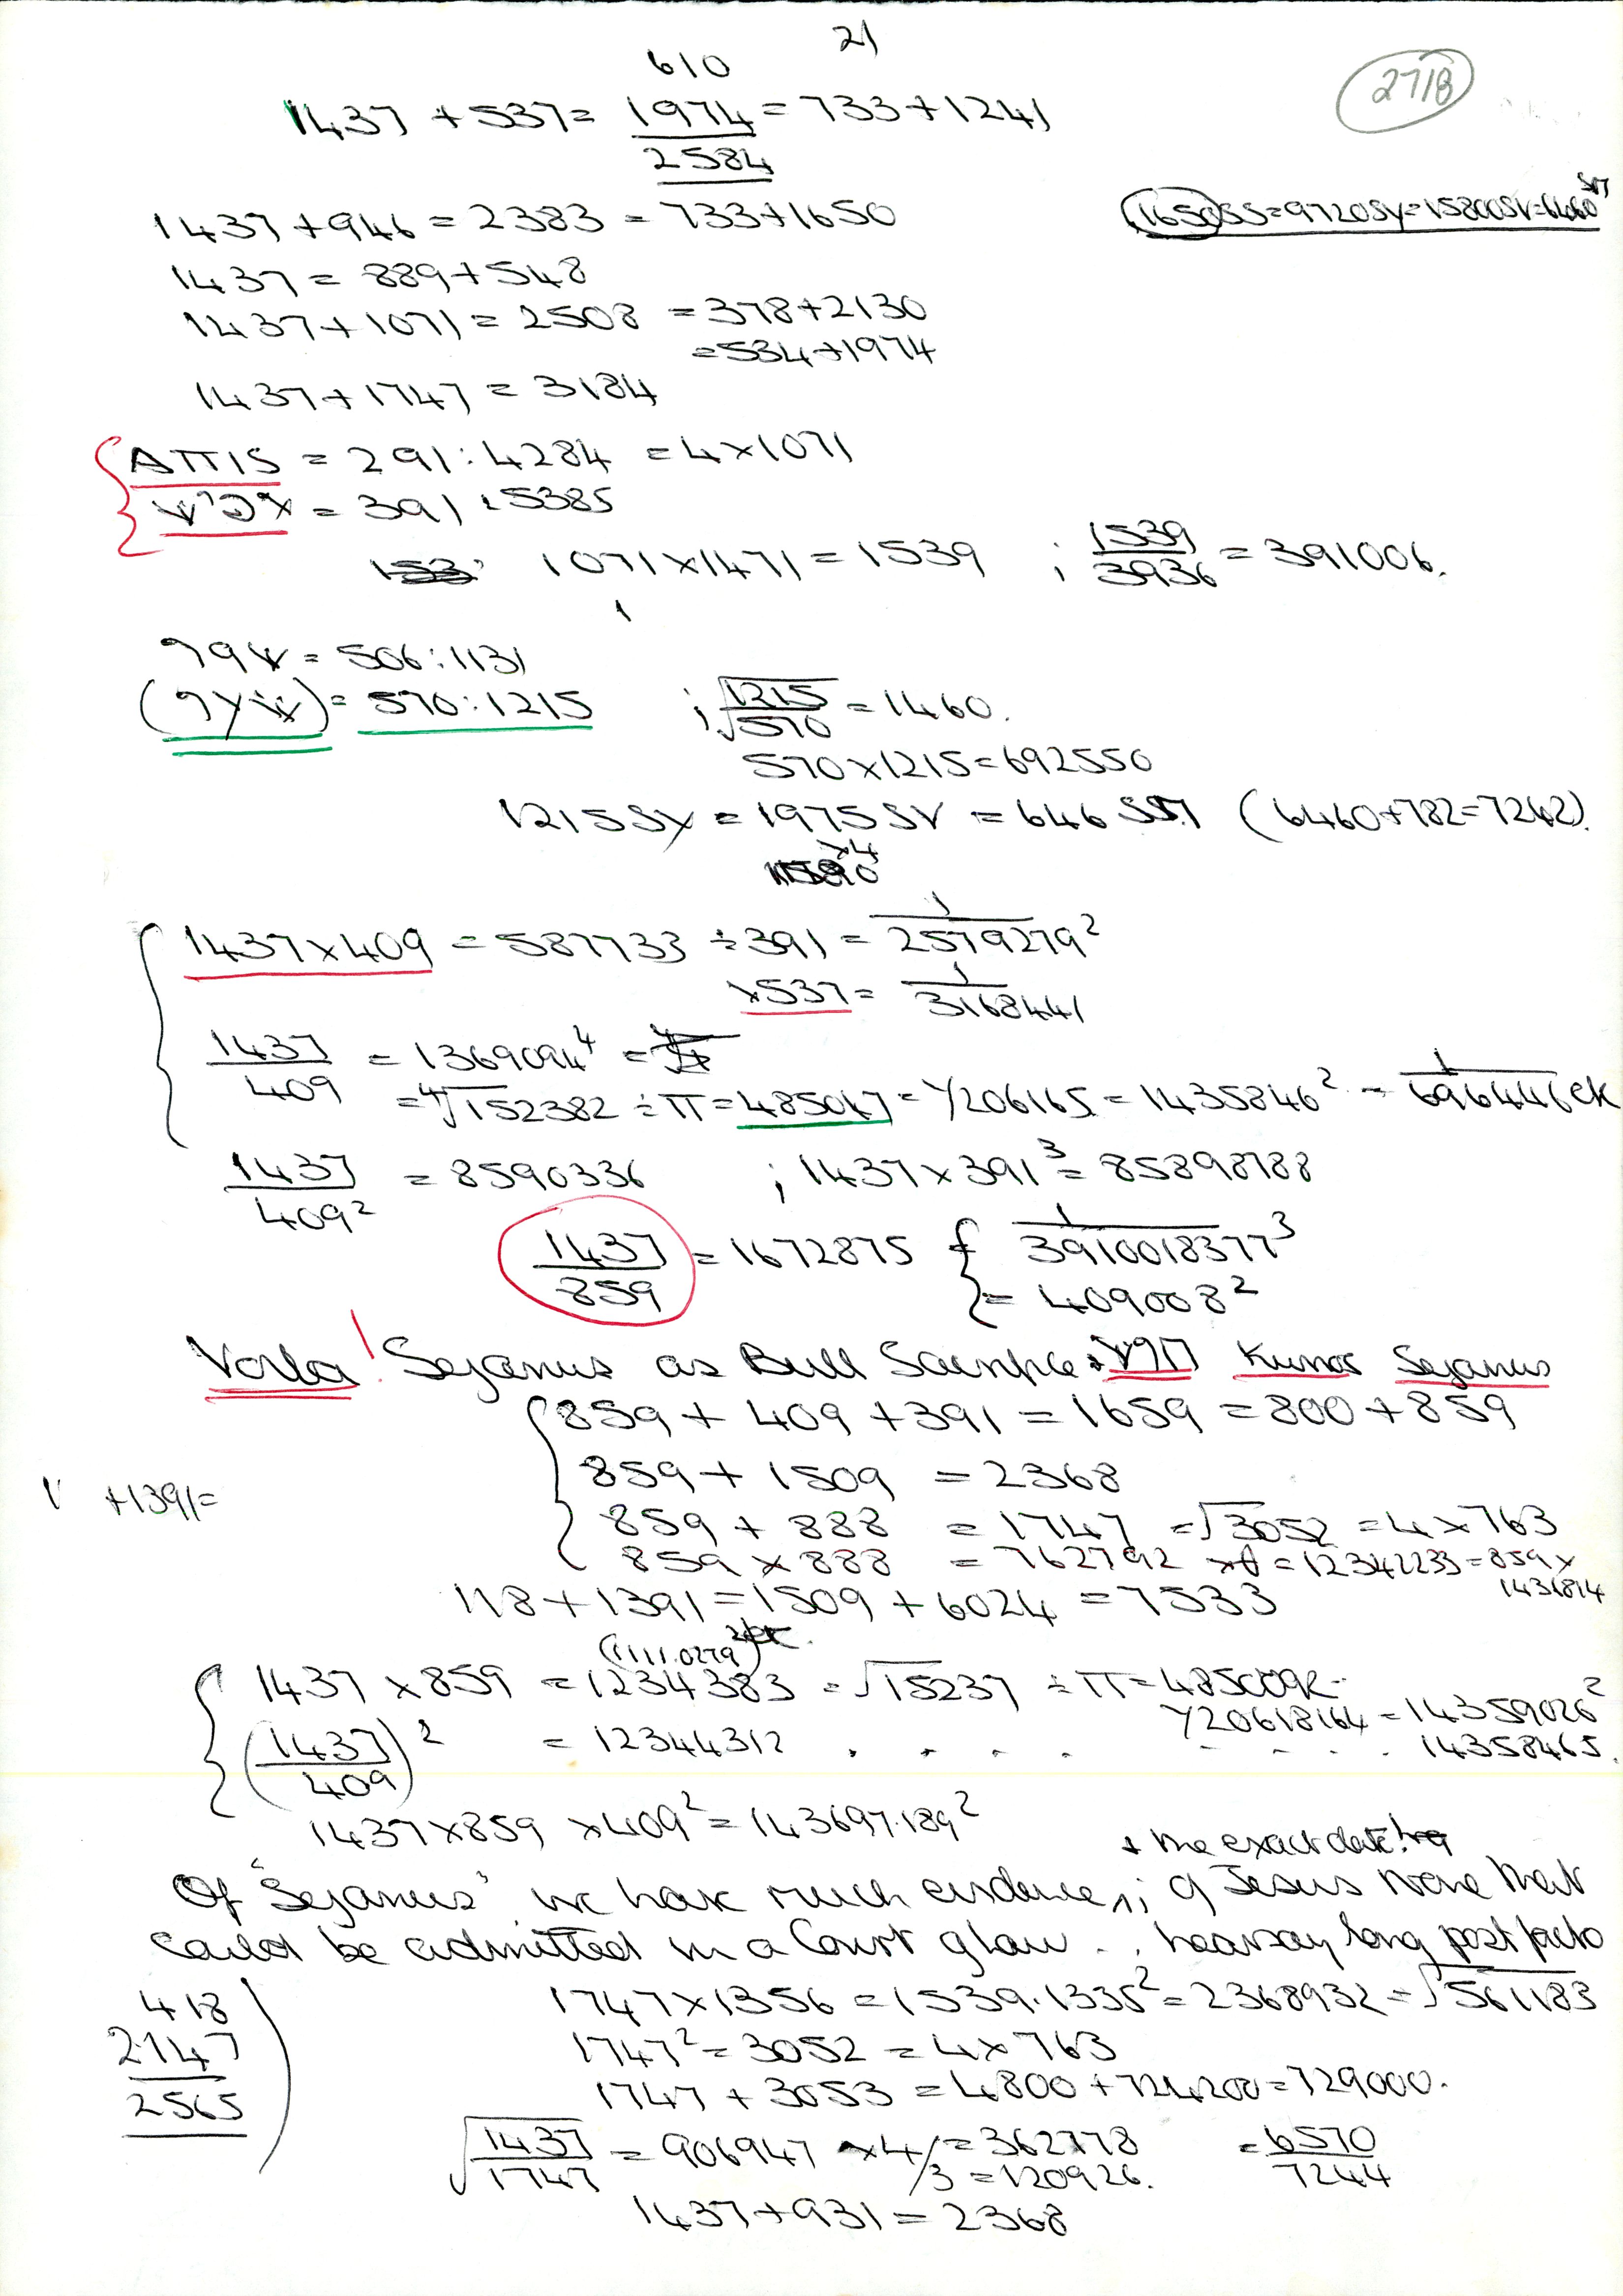 21
610
2718
1437 + 537 = 1974 = 733 + 1241
2584
1650SS = 9720SY = 15800SV = 6460
1437 + 946 = 2383 = 733 + 1650
1437 = 889 + 548
1437 + 1071 = 2508 = 378 + 2130
= 534 + 1974
1437 + 1747 = 3184
ATTIS = 291 : 4284 = 4 × 1071
= 391 : 5385
153 1071 × 1471 = 1539 ; 1539/3936 = 391006.
= 506 : 1131
= 570 : 1215 ; √1215/√570 = 1460.
570 × 1215 = 692550
1215SY = 1975SV = 646 (6460 + 782 = 7242).
×4
1437 × 409 = 587733 ÷ 391 = 1/2579279²
× 537 = 1/3168441
1437/409 = 1369094⁴ =
= ⁴√152382 ÷ π = 485047 = Y206165 = 1435846² = 1/696446
1437/409² = 8590336 ; 1437 × 391³ = 85898788
1437/859 = 1672875 { 1/3910018377³
= 409008²
Voila! Sejanus as Bull Sacrifice Sejanus
859 + 409 + 391 = 1659 = 800 + 859
859 + 1509 = 2368
1 + 1391 =
859 + 888 = 1747 = √3052 = 4 × 763
859 × 888 = 762792 = 12342233 = 859 ×
1436814
118 + 1391 = 1509 + 6024 = 7533
(1111.0279)²
1437 × 859 = 1234383 = √15237 ÷ π = 485009
Y20618164 = 14359026²
(1437/409)² = 12344312 . . . . . . . . 14358465.
1437 × 859 × 409² = 143697.189²
+ the exact date!
Of "Sejanus" we have much evidence, ; of Jesus none that
could be admitted in a Court of law . . hearsay long post facto
418
2147
2565
1747 × 1356 = 1539.1335² = 2368932 = √561183
1747² = 3052 = 4 × 763
1747 + 3053 = 4800 + 724200 = 729000.
√1437/1747 = 906947 × 4 = 362778 = 6570/7244
/3 = 120926.
1437 + 931 = 2368